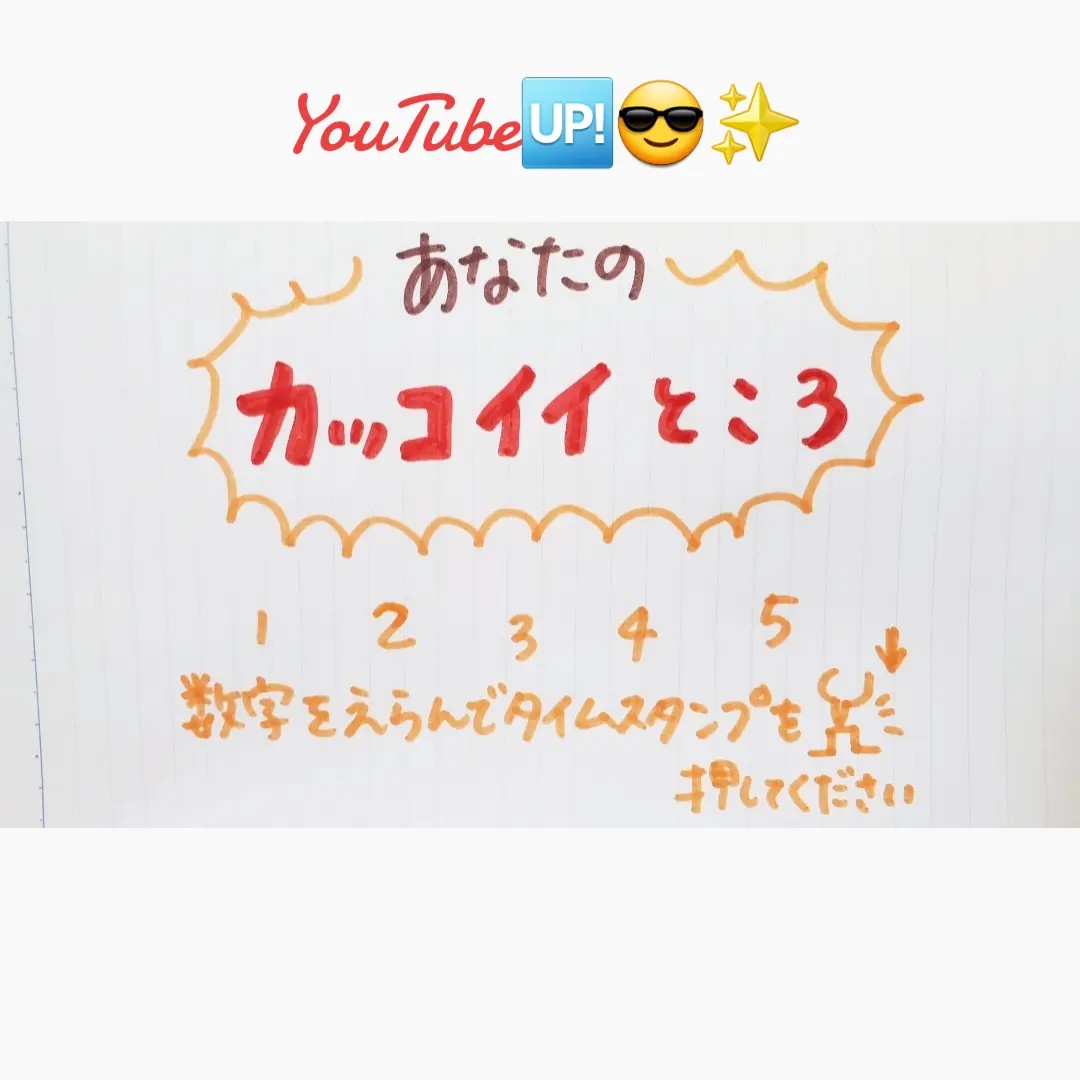 YouTube🆙😎✨
あなたの
カッコイイところ
1 2 3 4 5
数字をえらんでタイムスタンプを
押してください